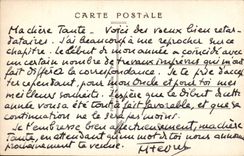 CARTE POSTALE
Ma chère Tante. Voici des vœux bien retar-
dataires. J'ai beaucoup à me reprocher sur ce
chapitre. Le début de mon année a coïncidé avec
un certain nombre de travaux imprévus qui m'a
fait différer la correspondance. Je te prie d'accep
cependant, pour mon Oncle et pour toi mes
meilleurs souhaits. J'espère que le début de cette
année vous a été tout à fait favorable, et que la
continuation ne le sera pas moins.
Je t'embrasse bien affectueusement, ma chère
Tante, en attendant qu'un mot de toi nous annonce
prochainement ta venue.